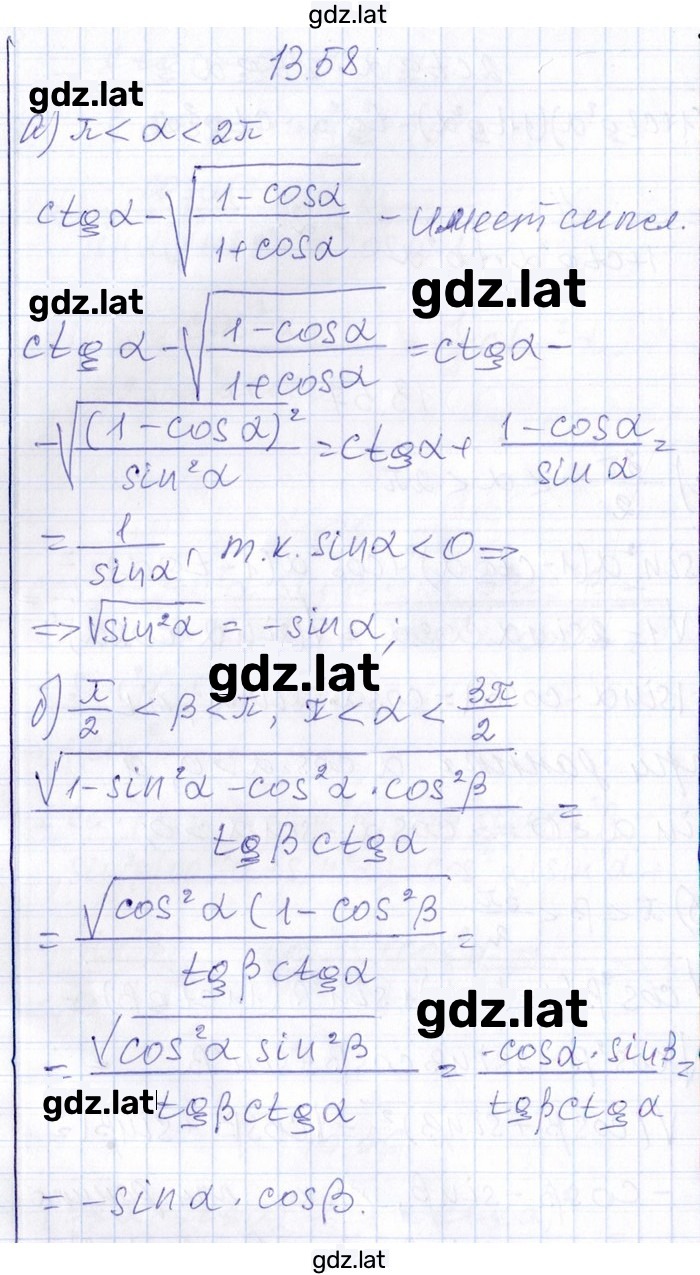 gdz.lat
1358
gdz.lat
а) π < α < 2π
ctg α - √((1 - cosα)/(1 + cosα)) - имеет смысл.
gdz.lat
gdz.lat
ctg α - √((1 - cosα)/(1 + cosα)) = ctg α -
- √((1 - cosα)²/sin²α) = ctg α + (1 - cosα)/(sin α) =
= 1/(sinα), т.к. sinα < 0 ⇒
⇒ √sin²α = - sin α;
gdz.lat
б) π/2 < β < π, π < α < 3π/2
√(1 - sin²α - cos²α · cos²β)/(tg β ctg α) =
= √(cos²α (1 - cos²β)/(tg β ctg α) =
gdz.lat
= √(cos²α sin²β)/(tg β ctg α) = (-cosα · sinβ)/(tg β ctg α) =
gdz.lat
= - sin α · cosβ.
gdz.lat